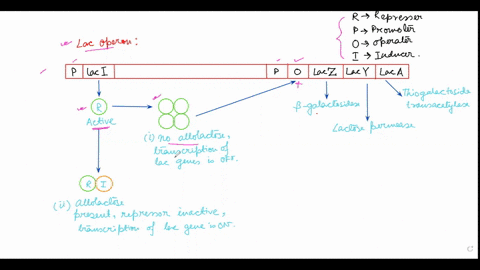 R → Repressor
P → Promoter
O → operator
I → Inducer.
Lac operon:
P LacI P O LacZ LacY LacA
R
Active
β-galactosidase
Lactose permease
Thiogalactoside
transacetylase
(i) no allolactose,
transcription of
lac genes is OFF.
R I
(ii) Allolactose
present, repressor inactive,
transcription of lac gene is ON.